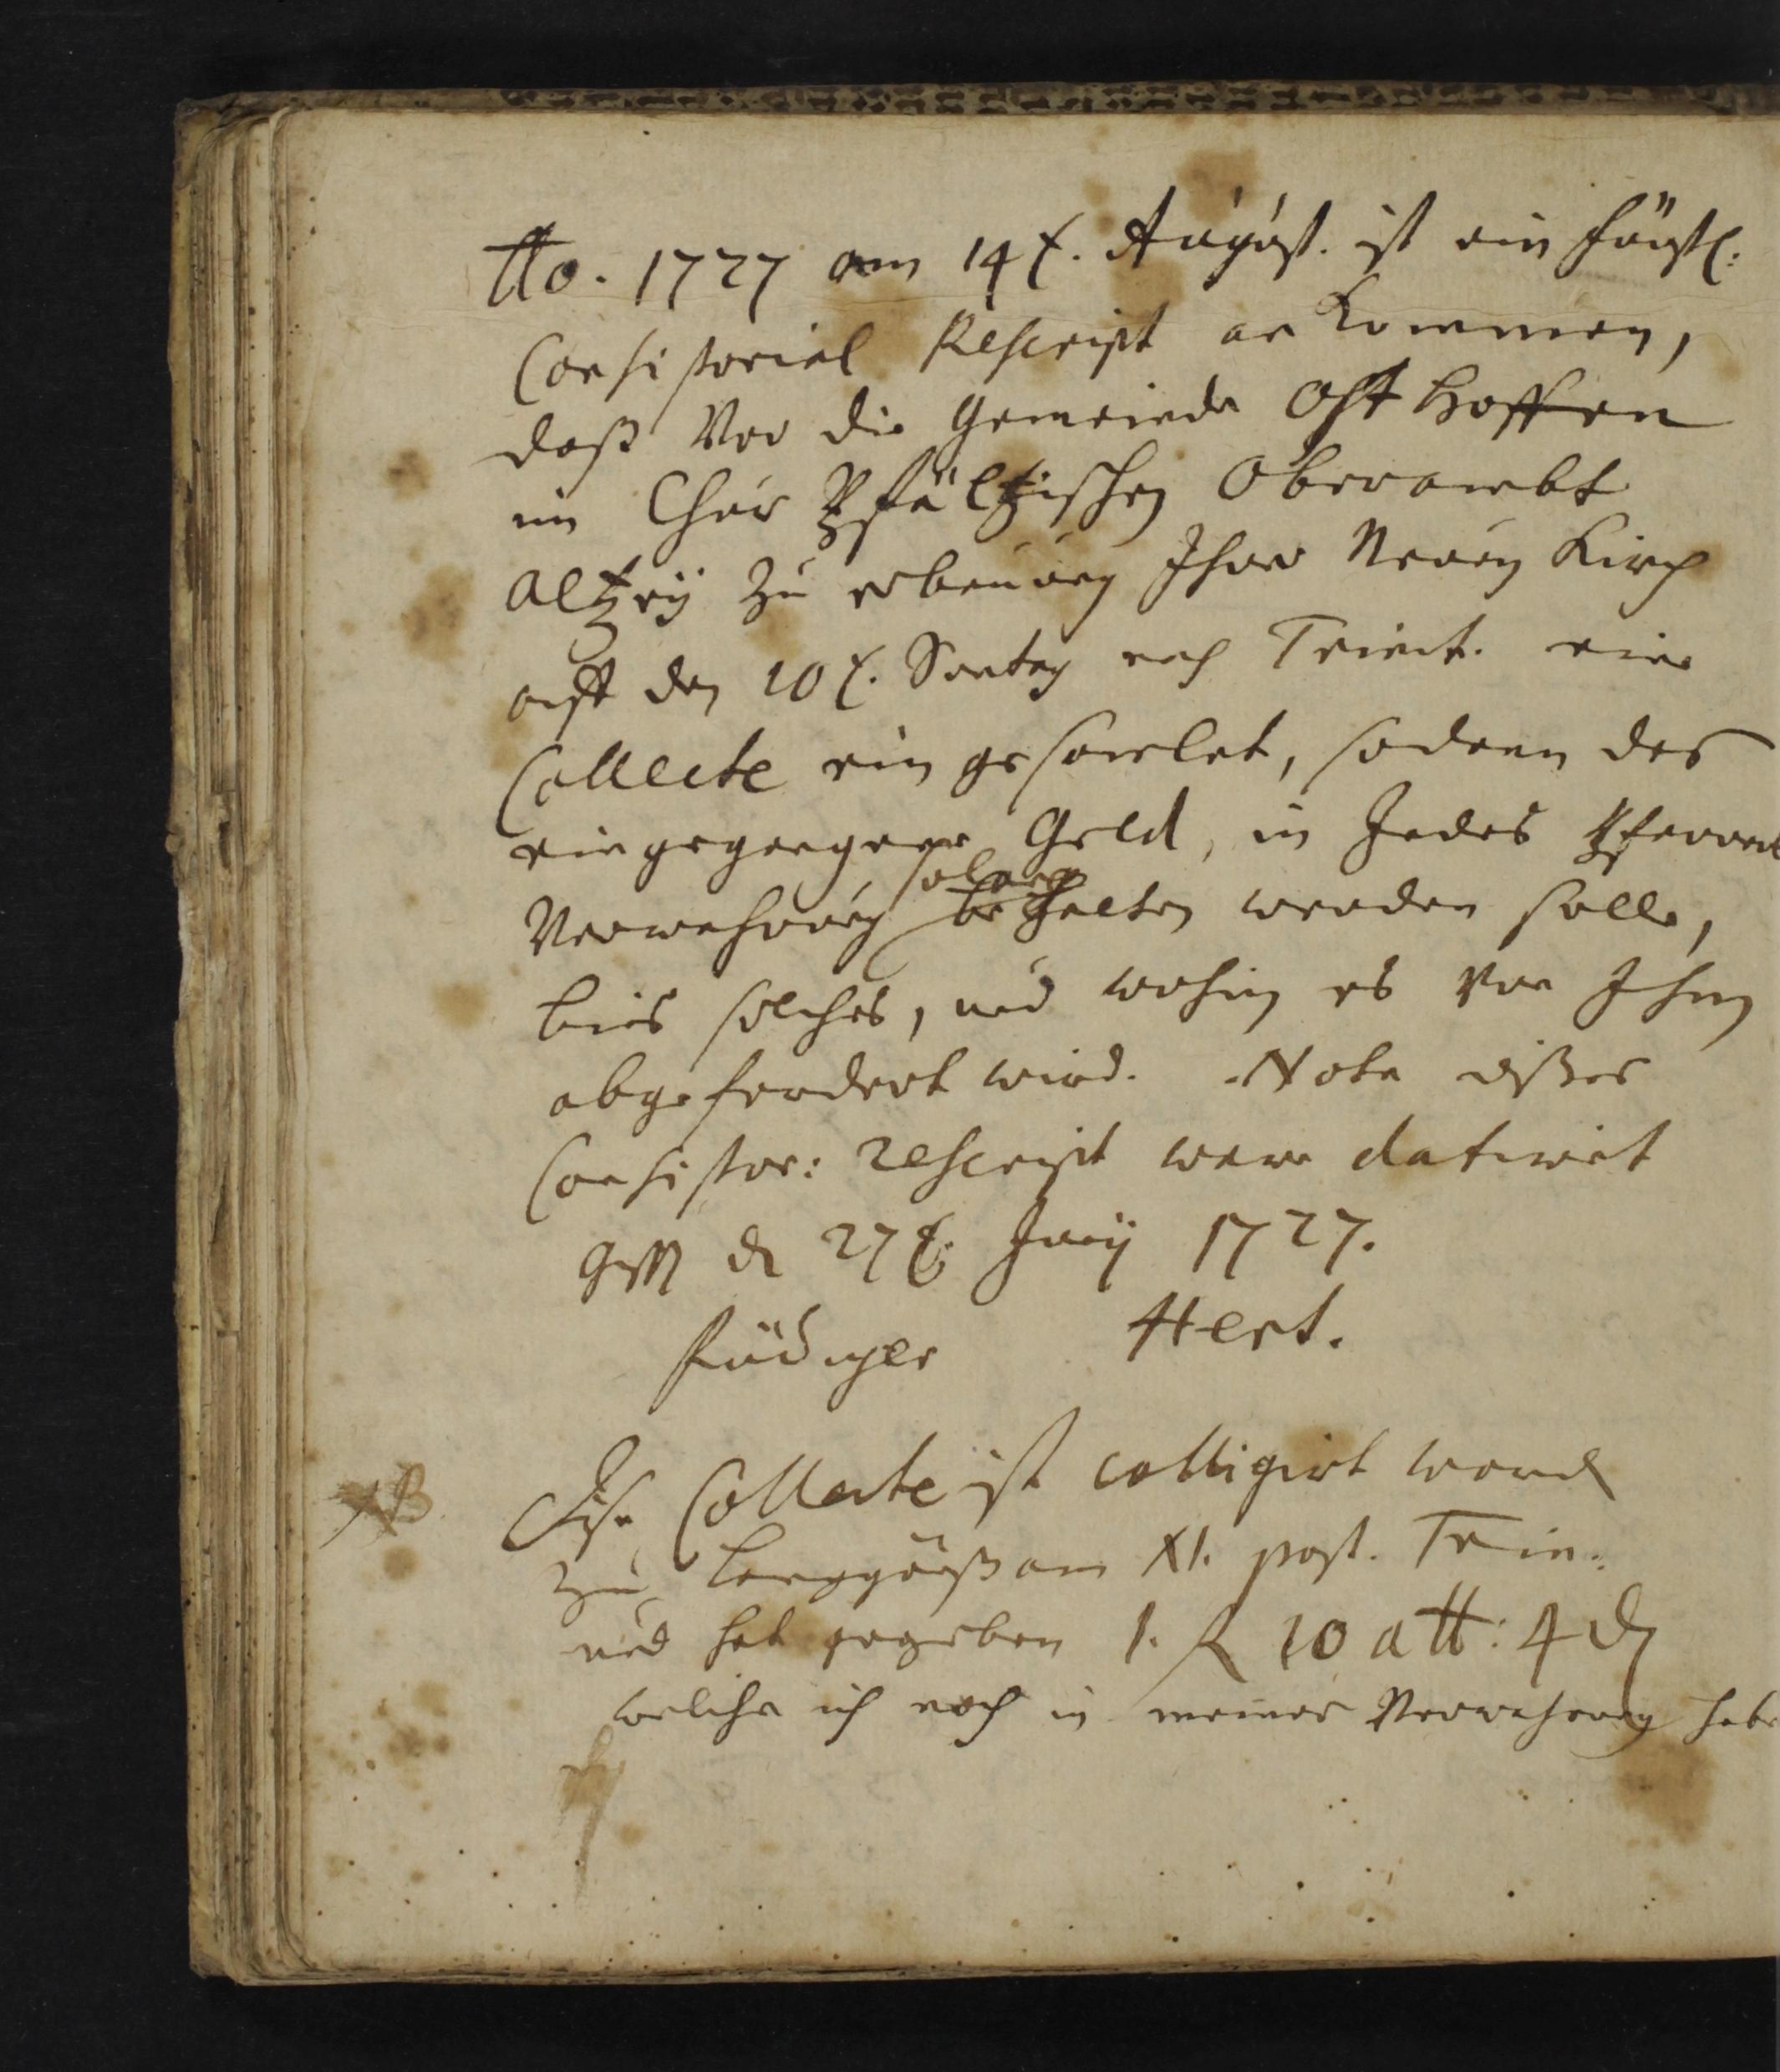 Ao. 1727 am 14t. August. ist ein fürstl:
Consistorial Rescript ankommen,
daß Vor die Gemeinde Osthoffen
im Chur Pfältzischen Oberambt
Altzeÿ zu erbauung Ihrer Neuen Kirch
auff den 10t. Sontag nach Trinit. eine
Collecte eingesamlet, sodann das
eingegangene Geld, in Jedes Pfarrers
Verwahrung solang behalten werden solle,
biß solches, und wohin es Von Ihm
abgefordert wird. Nota dißes
Consistor: rescript ware datiret
den 27t. Junÿ 1727.
Rüdiger Hert.
NB. Dise Collecte ist colligirt word
zu Langgönß am XI. post. Trin:
und hat gegeben 1. fl 10 alb: 4 d
welche ich noch in meiner Verwahrung habe